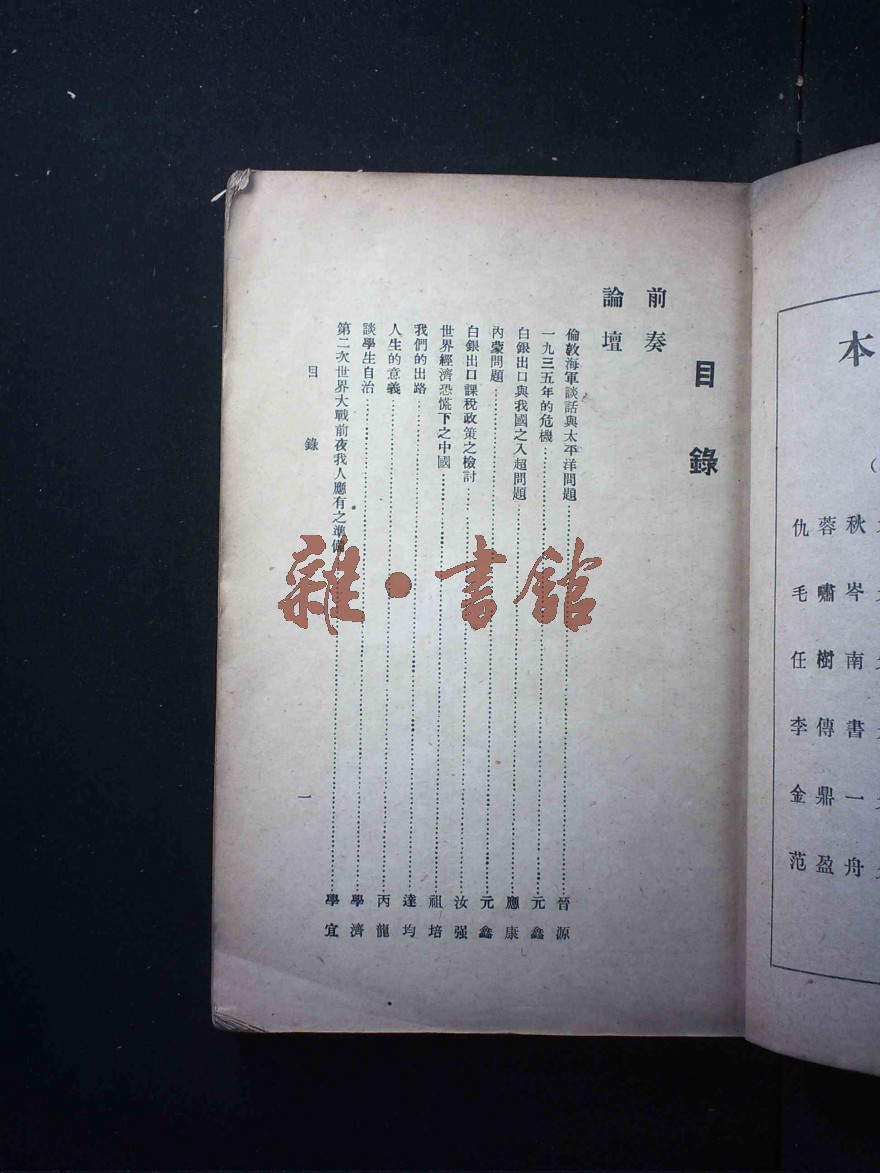 目錄
前奏
論壇
倫敦海軍談話與太平洋問題……晉源
一九三五年的危機……元鑫
白銀出口與我國之入超問題……應康
內蒙問題……元鑫
白銀出口課稅政策之檢討……汝强
世界經濟恐慌下之中國……祖培
我們的出路……達均
人生的意義……丙龍
談學生自治……學濟
第二次世界大戰前夜我人應有之準備……學宜
目錄
一
雜·書館
本
仇蓉秋
毛嘯岑
任樹南
李傳書
金鼎一
范盈舟